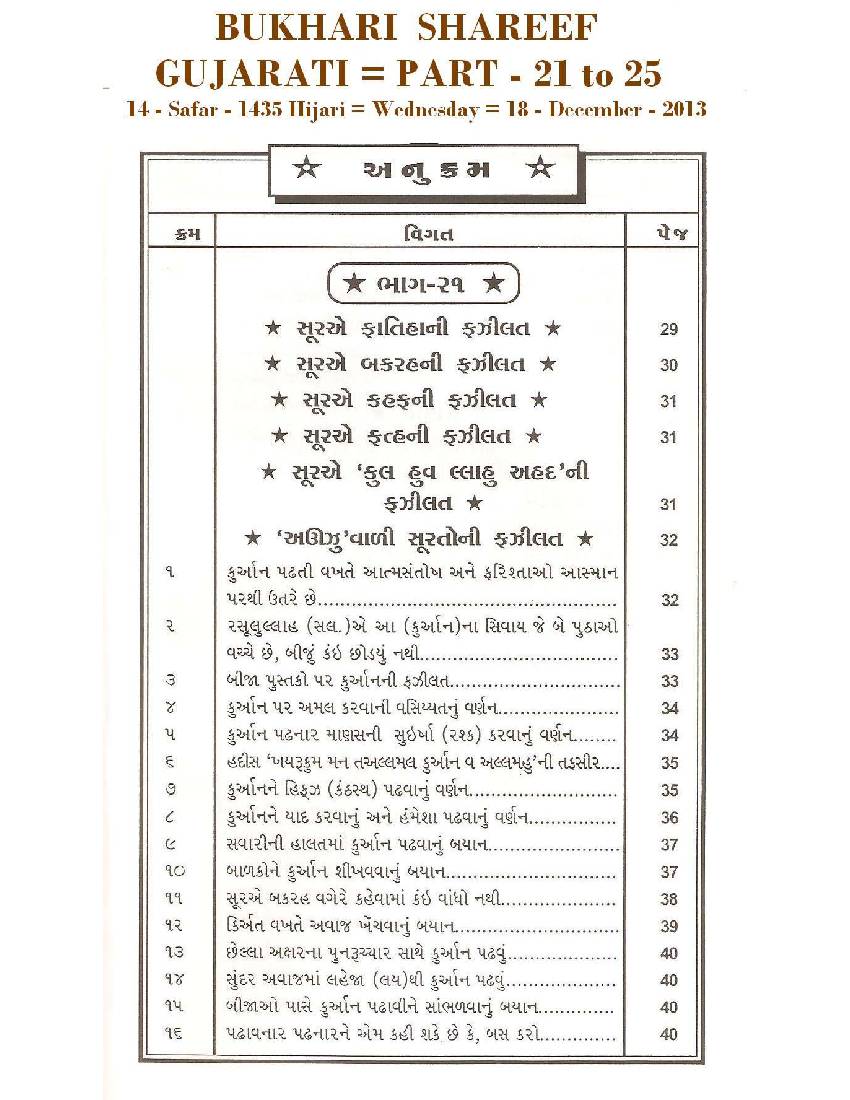 BUKHARI SHAREEF
GUJARATI = PART - 21 to 25
14 - Safar - 1435 Hijari = Wednesday = 18 - December - 2013
☆ અનુક્રમ ☆
ક્રમ વિગત પેજ
★ ભાગ-૨૧ ★
★ સૂરએ ફાતિહાની ફઝીલત ★ 29
★ સૂરએ બકરહની ફઝીલત ★ 30
★ સૂરએ કહફની ફઝીલત ★ 31
★ સૂરએ ફત્હની ફઝીલત ★ 31
★ સૂરએ ‘કુલ હુવ લ્લાહુ અહદ’ની
ફઝીલત ★ 31
★ ‘અઊઝુ’વાળી સૂરતોની ફઝીલત ★ 32
૧ કુર્આન પઢતી વખતે આત્મસંતોષ અને ફરિશ્તાઓ આસ્માન
પરથી ઉતરે છે..................................................... 32
૨ રસૂલુલ્લાહ (સલ.)એ આ (કુર્આન)ના સિવાય જે બે પુઠાઓ
વચ્ચે છે, બીજું કંઇ છોડયું નથી................................... 33
૩ બીજા પુસ્તકો પર કુર્આનની ફઝીલત.............................. 33
૪ કુર્આન પર અમલ કરવાની વસિય્યતનું વર્ણન..................... 34
૫ કુર્આન પઢનાર માણસની સુઇર્ષા (રશ્ક) કરવાનું વર્ણન........ 34
૬ હદીસ ‘ખયરૂકુમ મન તઅલ્લમલ કુર્આન વ અલ્લમહુ’ની તફસીર.... 35
૭ કુર્આનને હિફઝ (કંઠસ્થ) પઢવાનું વર્ણન.......................... 35
૮ કુર્આનને યાદ કરવાનું અને હંમેશા પઢવાનું વર્ણન................ 36
૯ સવારીની હાલતમાં કુર્આન પઢવાનું બયાન....................... 37
૧૦ બાળકોને કુર્આન શીખવવાનું બયાન.............................. 37
૧૧ સૂરએ બકરહ વગેરે કહેવામાં કંઇ વાંધો નથી..................... 38
૧૨ કિર્અત વખતે અવાજ ખેંચવાનું બયાન............................. 39
૧૩ છેલ્લા અક્ષરના પુનરૂચ્ચાર સાથે કુર્આન પઢવું................... 40
૧૪ સુંદર અવાજમાં લહેજા (લય)થી કુર્આન પઢવું.................... 40
૧૫ બીજાઓ પાસે કુર્આન પઢાવીને સાંભળવાનું બયાન.............. 40
૧૬ પઢાવનાર પઢનારને એમ કહી શકે છે કે, બસ કરો.............. 40